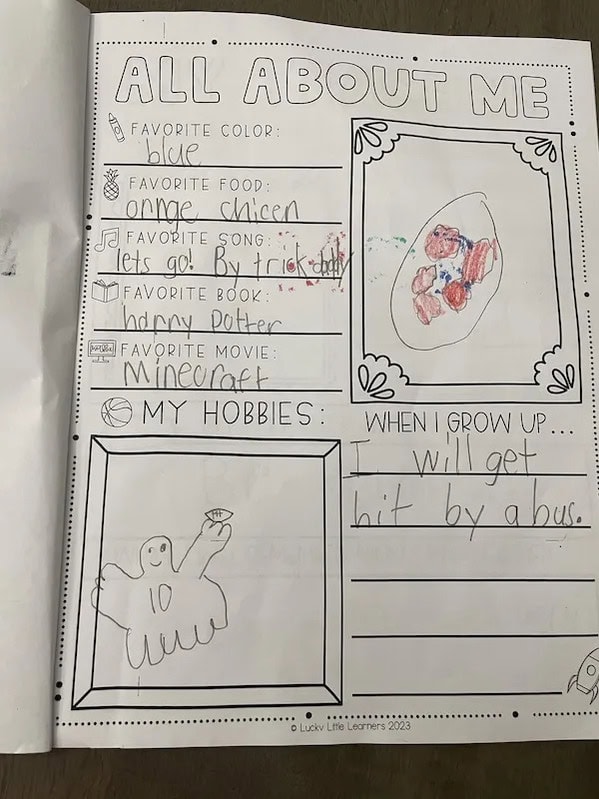 ALL ABOUT ME
FAVORITE COLOR:
blue
FAVORITE FOOD:
ornge chicen
FAVORITE SONG:
lets go! By trick daddy
FAVORITE BOOK:
harry Potter
FAVORITE MOVIE:
Minecraft
MY HOBBIES:
10
WHEN I GROW UP...
I will get
hit by a bus.
© Lucky Little Learners 2023